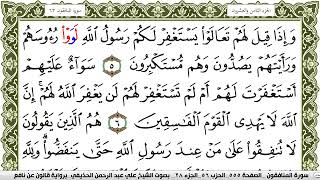 الجزء الثامن والعشرون
سورة المنافقون ٦٣
وَإِذَا قِيلَ لَهُمْ تَعَالَوْاْ يَسْتَغْفِرْ لَكُمْ رَسُولُ اللَّهِ لَوَوْاْ رُءُوسَهُمْ
وَرَأَيْتَهُمْ يَصُدُّونَ وَهُم مُّسْتَكْبِرُونَ ٥ سَوَآءٌ عَلَيْهِمْ
أَسْتَغْفَرْتَ لَهُمْ أَمْ لَمْ تَسْتَغْفِرْ لَهُمْ لَن يَغْفِرَ اللَّهُ لَهُمْ إِنَّ
اللَّهَ لَا يَهْدِى الْقَوْمَ الْفَٰسِقِينَ ٦ هُمُ الَّذِينَ يَقُولُونَ
لَا تُنفِقُواْ عَلَىٰ مَنْ عِندَ رَسُولِ اللَّهِ حَتَّىٰ يَنفَضُّواْ وَلِلَّهِ
سورة المنافقون الصفحة ٥٥٥ الحزب ٥٦ الجزء ٢٨ بصوت الشيخ علي عبد الرحمن الحذيفي برواية قالون عن نافع